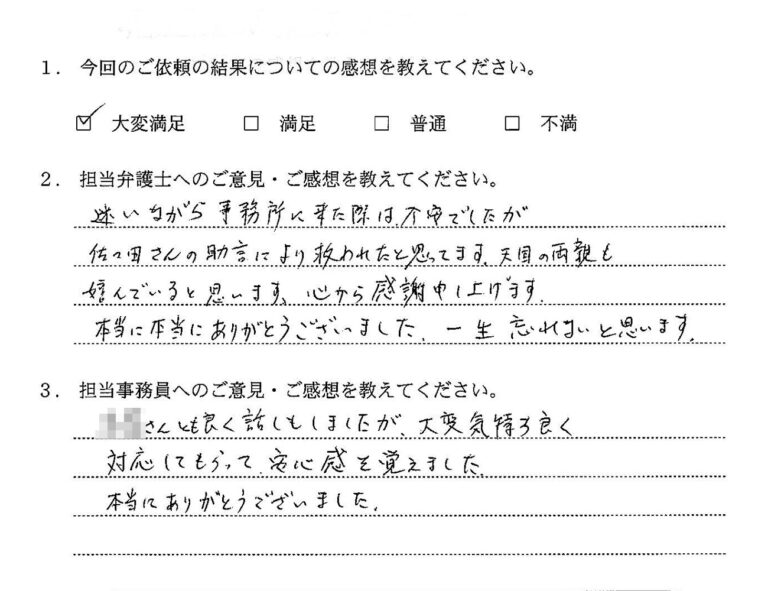 1. 今回のご依頼の結果についての感想を教えてください。
☑ 大変満足 □ 満足 □ 普通 □ 不満
2. 担当弁護士へのご意見・ご感想を教えてください。
迷いながら事務所に来た際は、不安でしたが
佐々田さんの助言により救われたと思ってます。天国の両親も
嬉んでいると思います。心から感謝申し上げます。
本当に本当にありがとうございました。一生忘れないと思います。
3. 担当事務員へのご意見・ご感想を教えてください。
さんとも良く話しもしましたが、大変気持ち良く
対応してもらって、安心感を覚えました。
本当にありがとうございました。